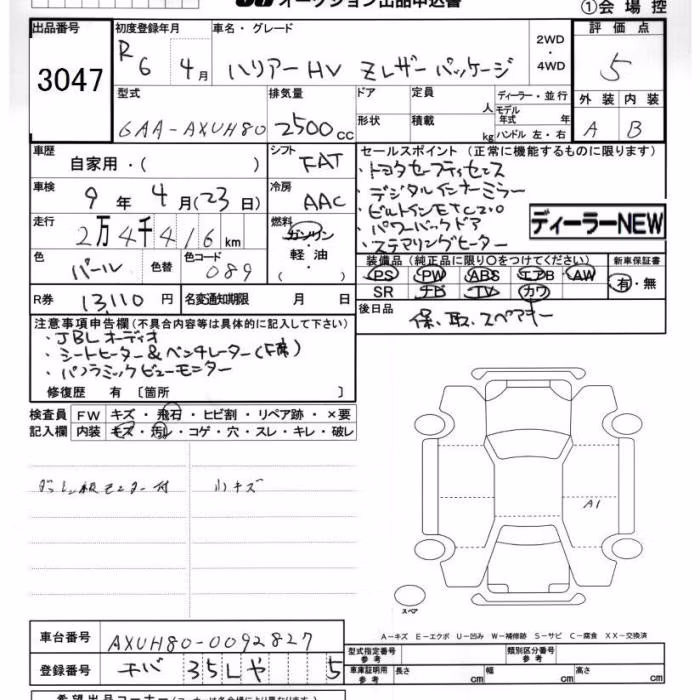 オークション出品申込書
①会場控
出品番号
3047
初度登録年月
R6 4月
車名・グレード
ハリアーHV Zレザーパッケージ
2WD
・
4WD
評価点
5
外装 内装
A B
型式
6AA-AXUH80
排気量
2500cc
ドア
形状
定員
人
積載
kg
ディーラー・並行
モデル年式 年
ハンドル 左・右
車歴
自家用・( )
シフト
FAT
車検
9年4月(23日)
冷房
AAC
走行
2万4千416km
燃料
ガソリン
・
軽油
( )
色
パール
色替
色コード
089
R券
13,110円
名変通知期限 月 日
セールスポイント (正常に機能するものに限ります)
・トヨタセーフティセンス
・デジタルインナーミラー
・ビルトインETC2.0
・パワーバックドア
・ステアリングヒーター
ディーラーNEW
装備品 (純正品に限り○をつけてください)
PS PW ABS エアB AW
SR ナビ TV カワ
新車保証書
有・無
後日品
保、取、スペアキー
注意事項申告欄(不具合内容等は具体的に記入して下さい)
・JBLオーディオ
・シートヒーター&ベンチレーター(F席)
・パノラミックビューモニター
修復歴 有 〔箇所 〕
検査員記入欄
FW キズ・飛石・ヒビ割・リペア跡・×要
内装 キズ・汚レ・コゲ・穴・スレ・キレ・破レ
小キズ
A1
スペア
A－キズ E－エクボ U－凹み W－補修跡 S－サビ C－腐食 XX－交換済
車台番号
AXUH80-0092827
登録番号
チバ 35L や 5
型式指定番号
参考
類別区分番号
参考
車庫証明用
参考
長さ cm
幅 cm
高さ cm
希望出品コーナー